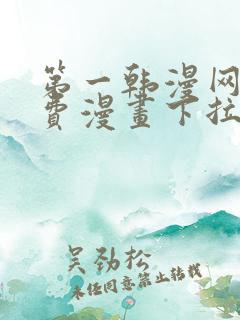 第一韩漫网
费漫畫下拉
吴劲松
未经同意禁止转载